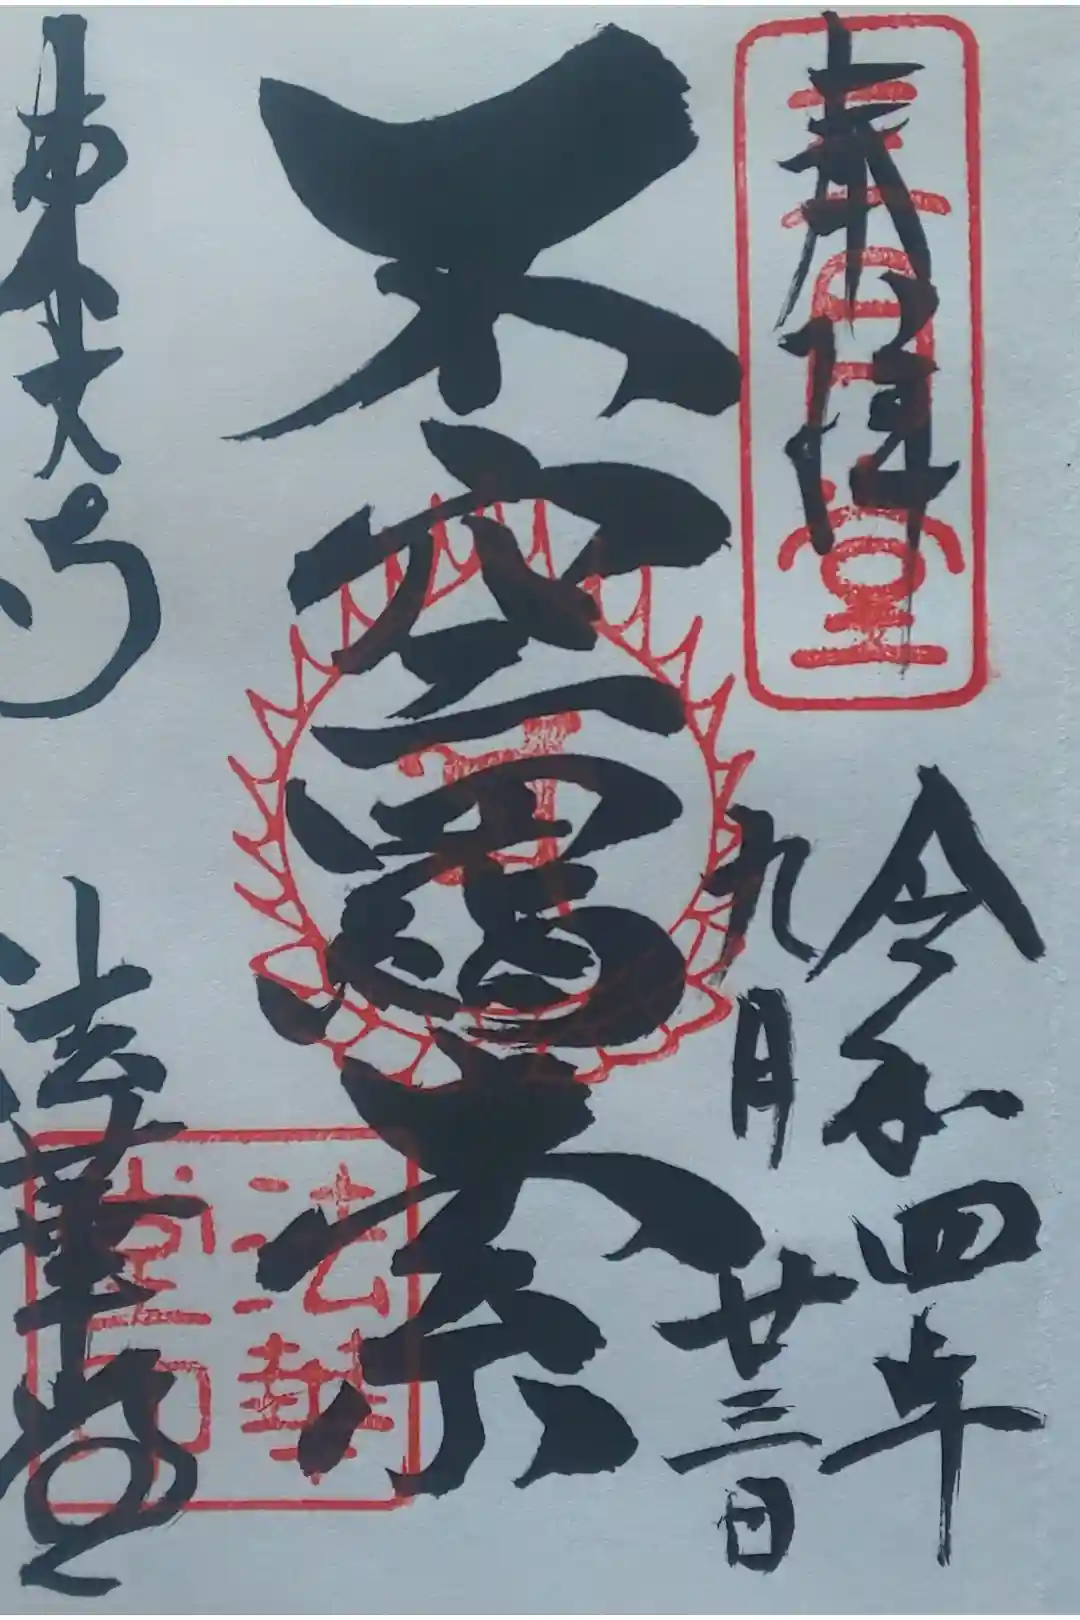 奉拝
三月堂
令和四年
九月廿三日
不空羂索
法華堂印
東大寺
法華堂